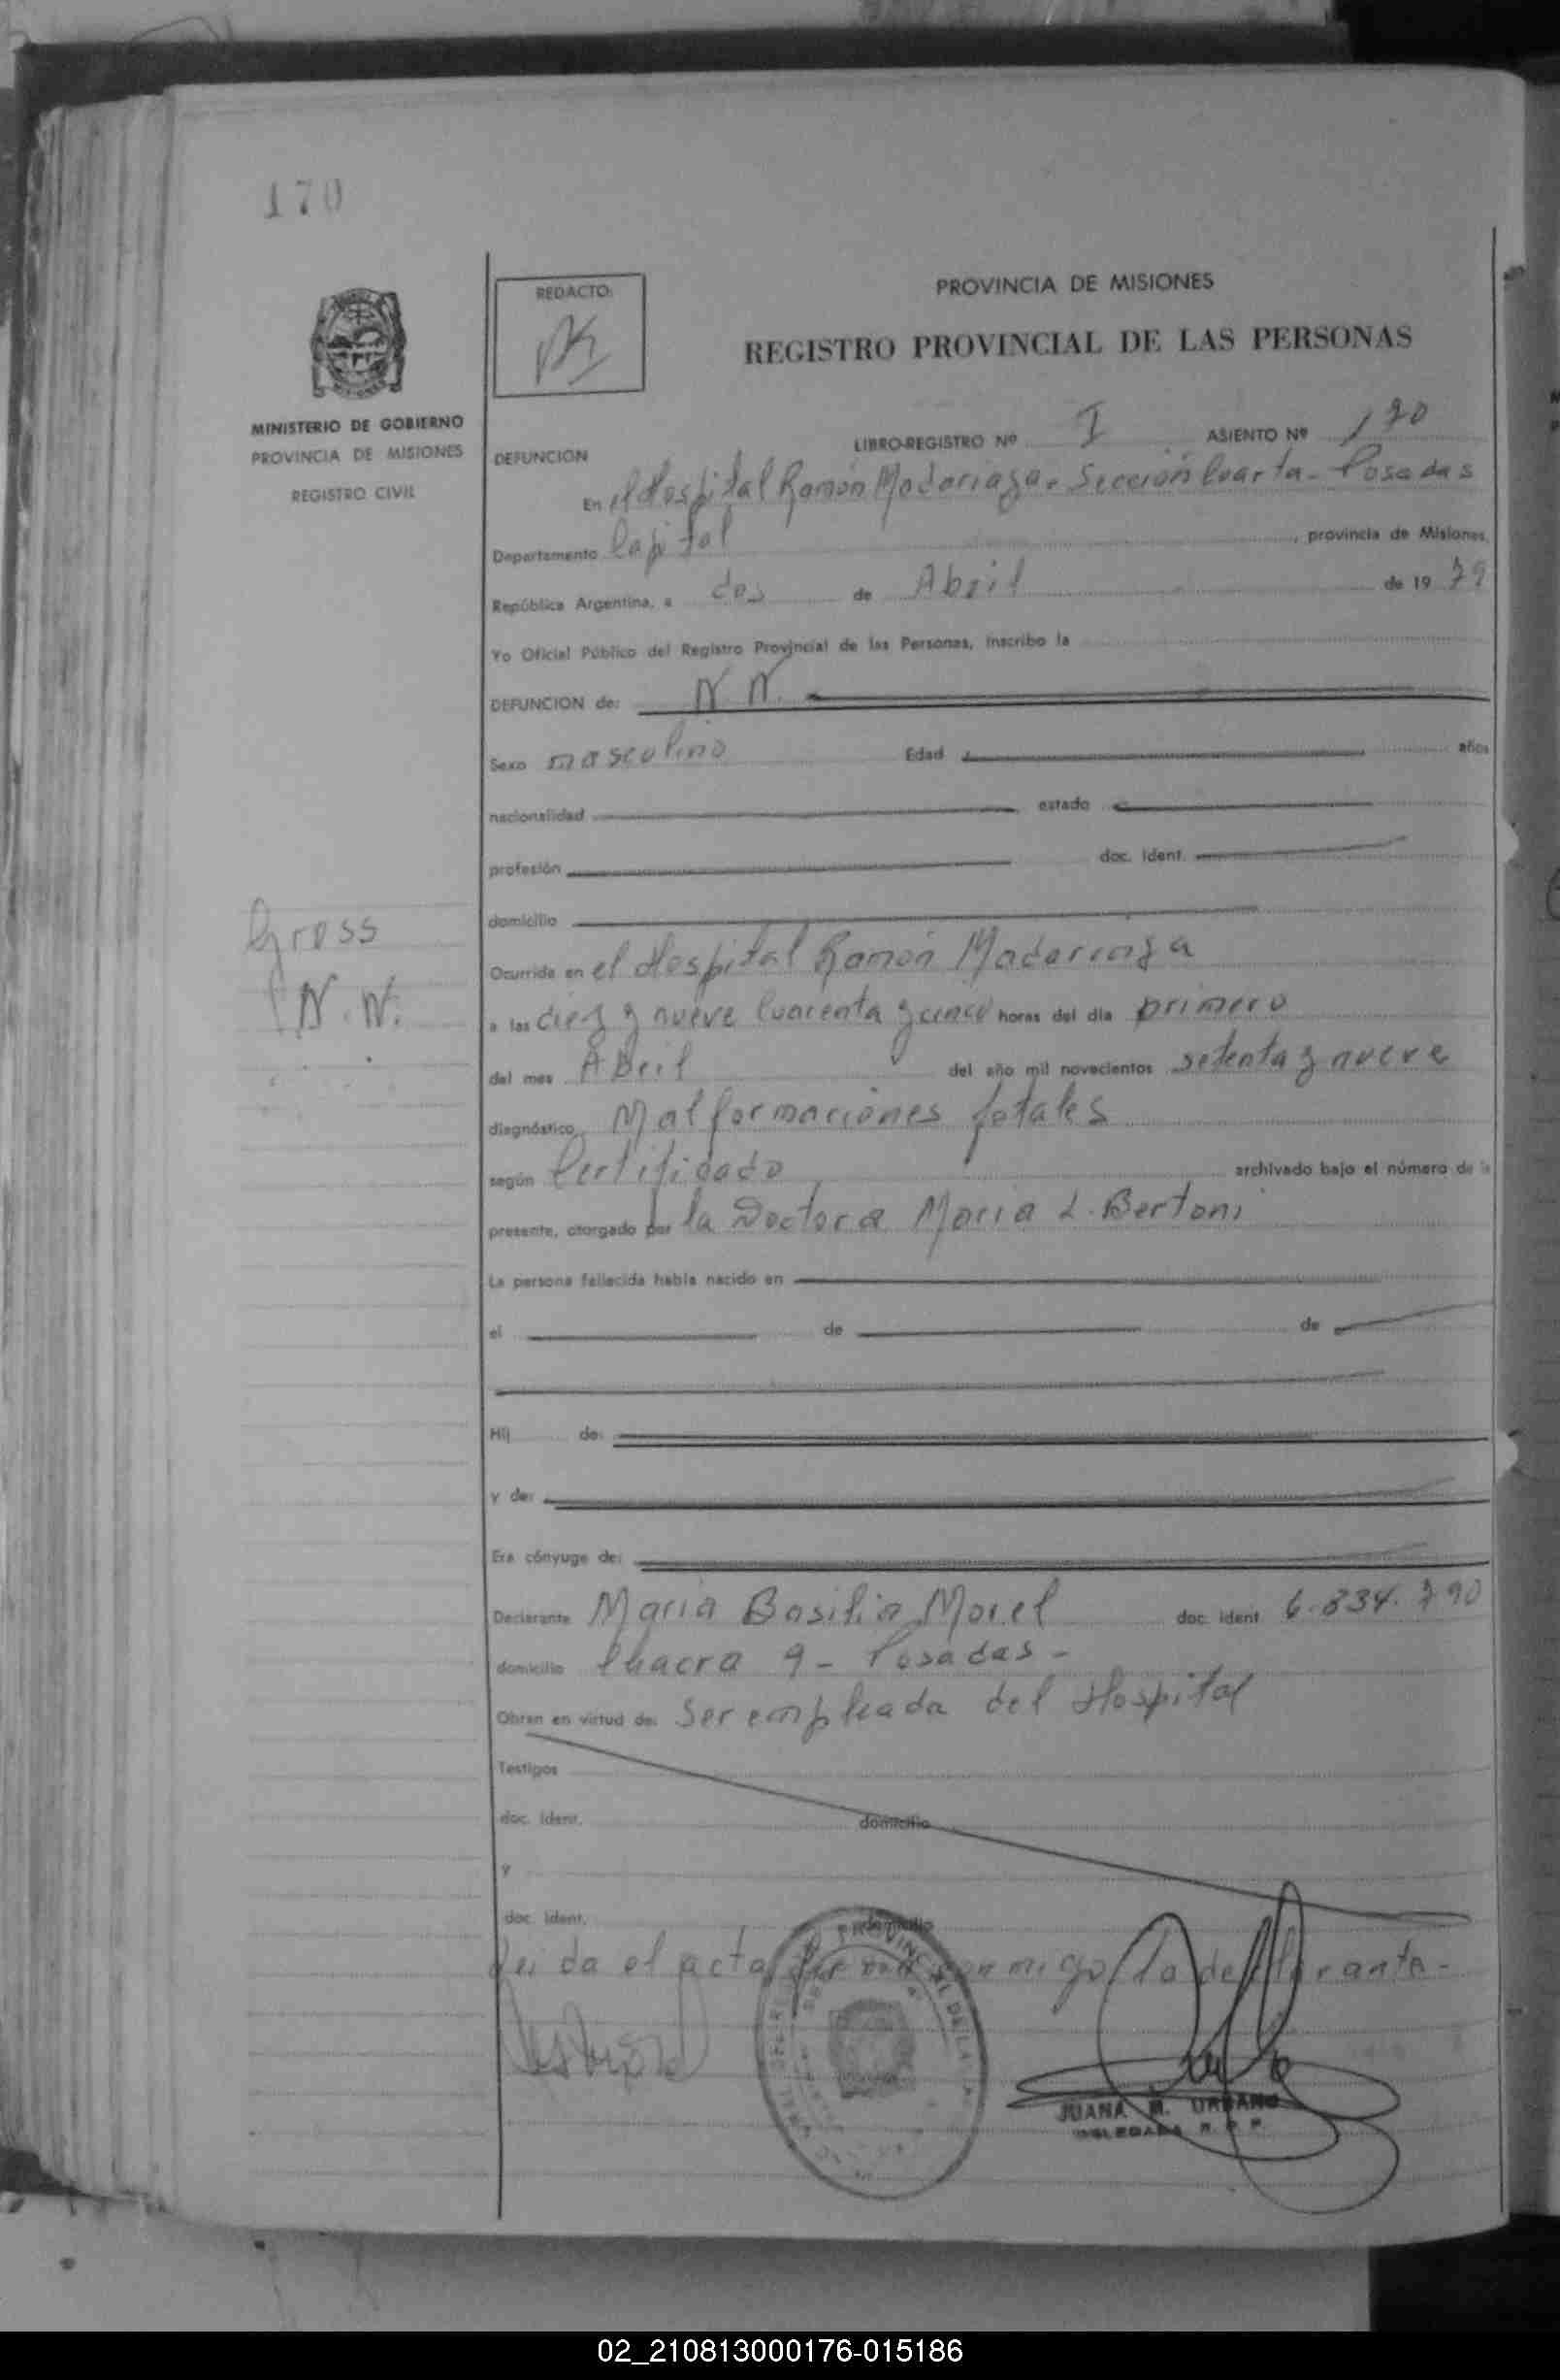 170
REDACTO:
PROVINCIA DE MISIONES
REGISTRO PROVINCIAL DE LAS PERSONAS
MINISTERIO DE GOBIERNO
PROVINCIA DE MISIONES
REGISTRO CIVIL
LIBRO-REGISTRO Nº I ASIENTO Nº 170
DEFUNCION
En el Hospital Ramón Madariaga - Sección Cuarta - Posadas
Departamento Capital, provincia de Misiones,
República Argentina, a dos de Abril de 19 79
Yo Oficial Público del Registro Provincial de las Personas, inscribo la
DEFUNCION de: N. N.
Sexo masculino Edad años
nacionalidad estado
profesión doc. ident.
domicilio
Gross
N. N.
Ocurrida en el Hospital Ramón Madariaga
a las diez y nueve cuarenta y cinco horas del día primero
del mes Abril del año mil novecientos setenta y nueve
diagnóstico Malformaciones fetales
según Certificado archivado bajo el número de la
presente, otorgado por la Doctora Maria L. Bertoni
La persona fallecida había nacido en
el de de
Hij de:
y de:
Era cónyuge de:
Declarante Maria Basilia Morel doc. ident. 6.834.790
domicilio Chacra 9 - Posadas -
Obran en virtud de: Ser empleada del Hospital
Testigos
doc. ident. domicilio
y
doc. ident. domicilio
Leida el acta firma conmigo la declarante -
JUANA M. URBANO
02_210813000176-015186